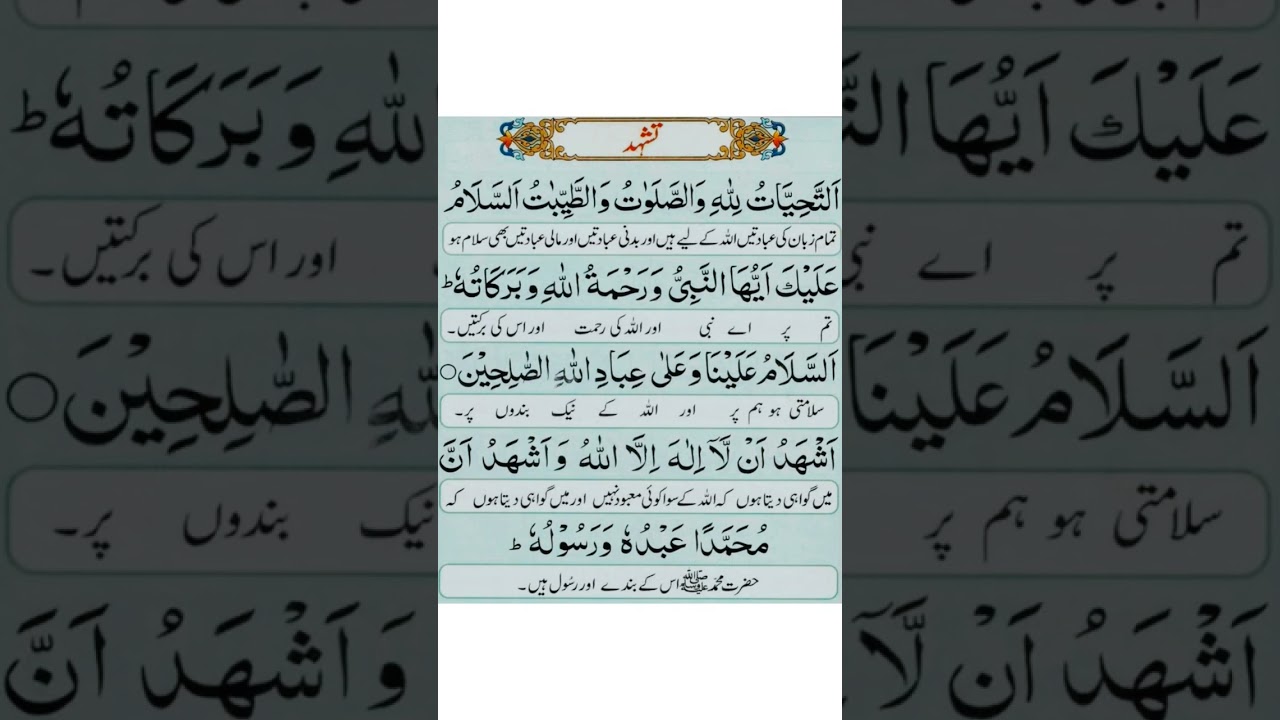 تشہد
اَلتَّحِيَّاتُ لِلّٰهِ وَالصَّلَوٰتُ وَالطَّيِّبٰتُ اَلسَّلَامُ
تمام زبان کی عبادتیں اللہ کے لیے ہیں اور بدنی عبادتیں اور مالی عبادتیں بھی سلام ہو
عَلَيْكَ اَيُّهَا النَّبِىُّ وَرَحْمَةُ اللّٰهِ وَبَرَكَاتُهٗ ؕ
تم پر اے نبی اور اللہ کی رحمت اور اس کی برکتیں۔
اَلسَّلَامُ عَلَيْنَا وَعَلٰى عِبَادِ اللّٰهِ الصّٰلِحِيْنَ ○
سلامتی ہو ہم پر اور اللہ کے نیک بندوں پر۔
اَشْهَدُ اَنْ لَّآ اِلٰهَ اِلَّا اللّٰهُ وَ اَشْهَدُ اَنَّ
میں گواہی دیتا ہوں کہ اللہ کے سوا کوئی معبود نہیں اور میں گواہی دیتا ہوں کہ
مُحَمَّدًا عَبْدُهٗ وَرَسُوْلُهٗ ؕ
حضرت محمد ﷺ اس کے بندے اور رسول ہیں۔